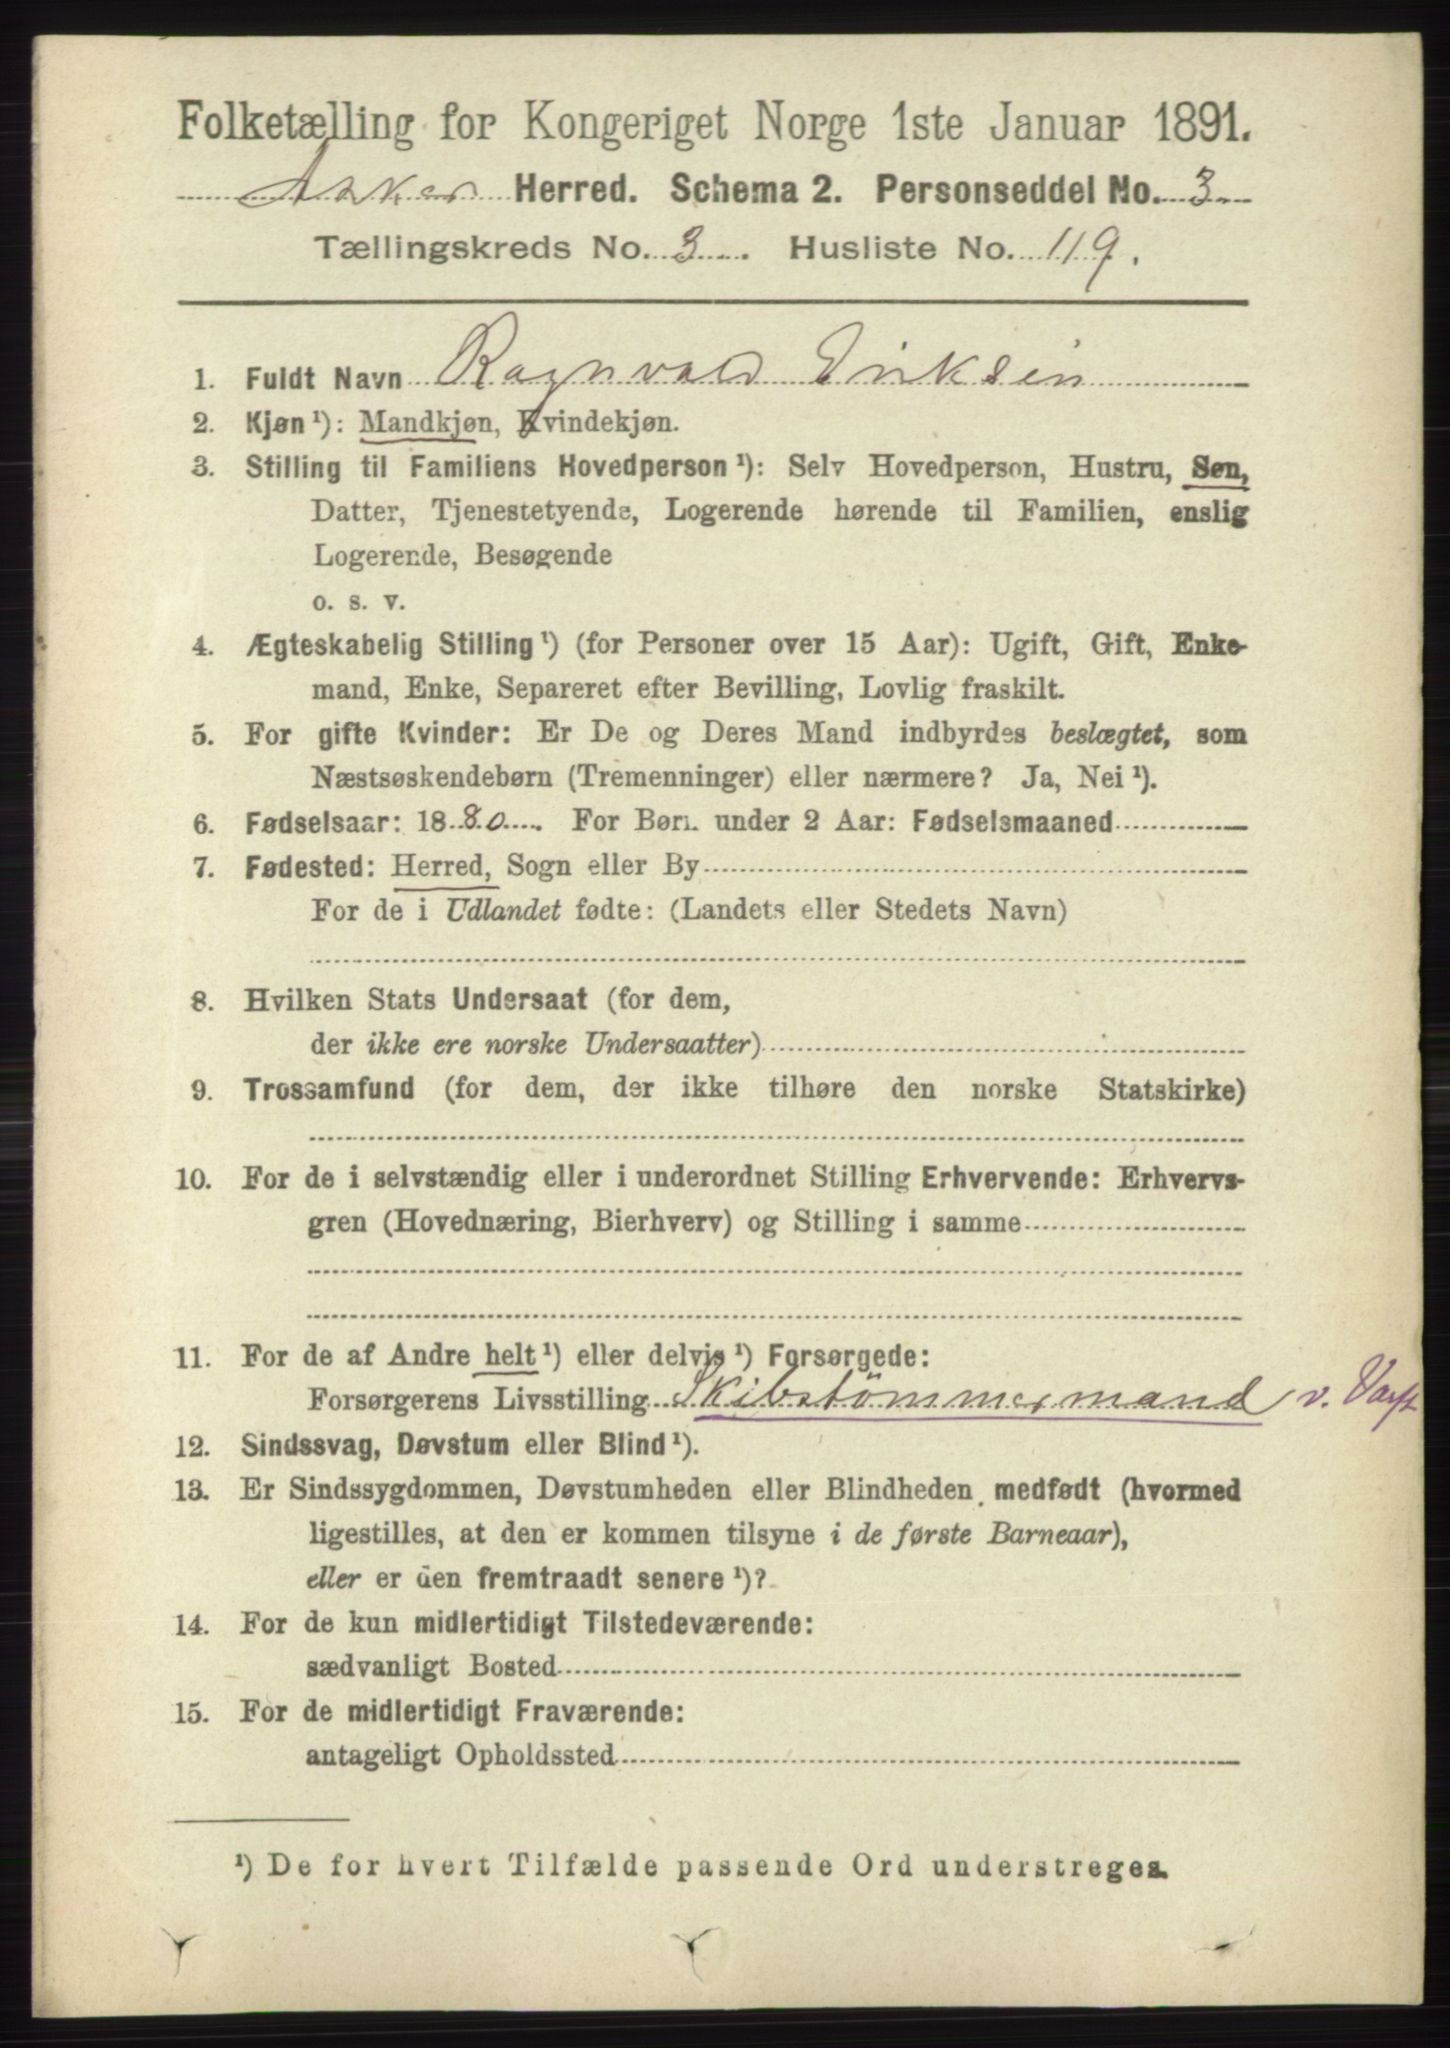 Folketælling for Kongeriget Norge 1ste Januar 1891.
Asker Herred. Schema 2. Personseddel No. 3
Tællingskreds No. 3. Husliste No. 119.
1. Fuldt Navn Ragnvald Eriksen
2. Kjøn¹): Mandkjøn, Kvindekjøn.
3. Stilling til Familiens Hovedperson¹): Selv Hovedperson, Hustru, Søn,
Datter, Tjenestetyende, Logerende hørende til Familien, enslig
Logerende, Besøgende
o. s. v.
4. Ægteskabelig Stilling¹) (for Personer over 15 Aar): Ugift, Gift, Enke-
mand, Enke, Separeret efter Bevilling, Lovlig fraskilt.
5. For gifte Kvinder: Er De og Deres Mand indbyrdes beslægtet, som
Næstsøskendebørn (Tremenninger) eller nærmere? Ja, Nei¹).
6. Fødselsaar: 1880. For Børn under 2 Aar: Fødselsmaaned
7. Fødested: Herred, Sogn eller By
For de i Udlandet fødte: (Landets eller Stedets Navn)
8. Hvilken Stats Undersaat (for dem,
der ikke ere norske Undersaatter)
9. Trossamfund (for dem, der ikke tilhøre den norske Statskirke)
10. For de i selvstændig eller i underordnet Stilling Erhvervende: Erhvervs-
gren (Hovednæring, Bierhverv) og Stilling i samme
11. For de af Andre helt¹) eller delvis¹) Forsørgede:
Forsørgerens Livsstilling Skibstömmermand v. Værft
12. Sindssvag, Døvstum eller Blind¹).
13. Er Sindssygdommen, Døvstumheden eller Blindheden medfødt (hvormed
ligestilles, at den er kommen tilsyne i de første Barneaar),
eller er den fremtraadt senere¹)?
14. For de kun midlertidigt Tilstedeværende:
sædvanligt Bosted
15. For de midlertidigt Fraværende:
antageligt Opholdssted
¹) De for hvert Tilfælde passende Ord understreges.